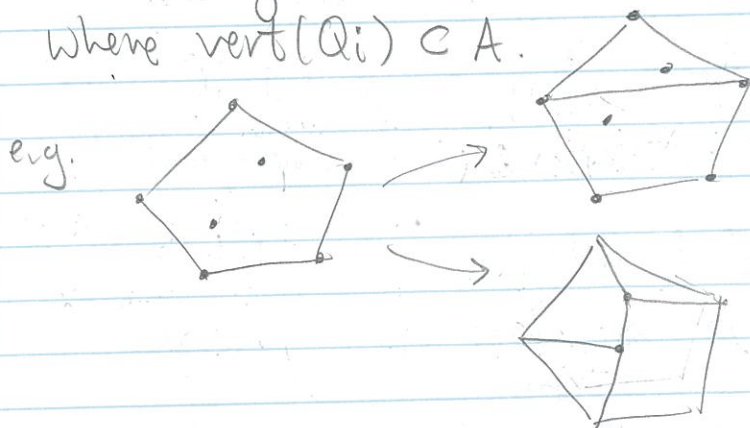 where vert(Qi) ⊂ A.
e.g.